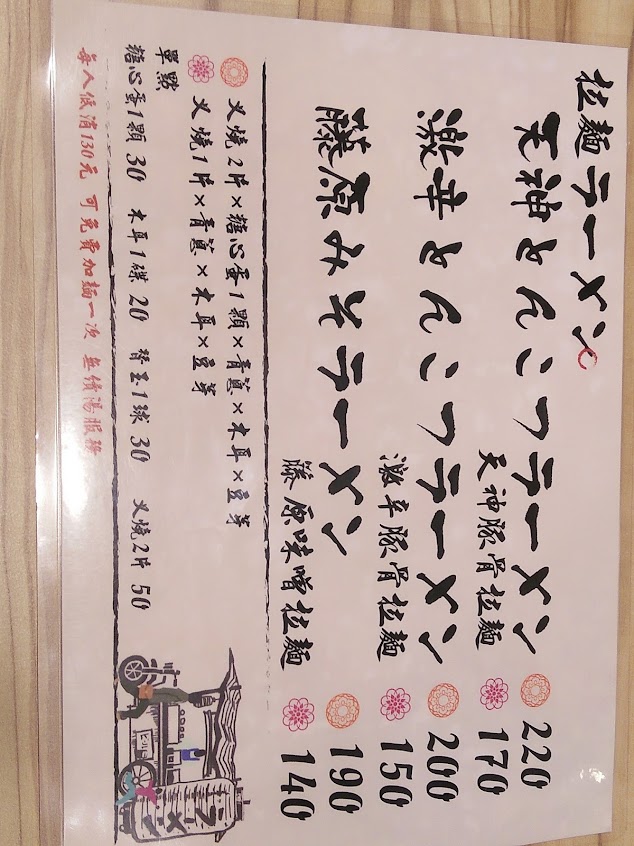 拉麵ラーメン
天神とんこつラーメン 220
天神豚骨拉麵 170
激辛とんこつラーメン 200
激辛豚骨拉麵 150
藤原みそラーメン 190
藤原味噌拉麵 140
叉燒2片×糖心蛋1顆×青蔥×木耳×豆芽
叉燒1片×青蔥×木耳×豆芽
單點
糖心蛋1顆 30 木耳1碟 20 替玉1球 30 叉燒2片 50
每人低消130元 可免費加麵一次 無續湯服務